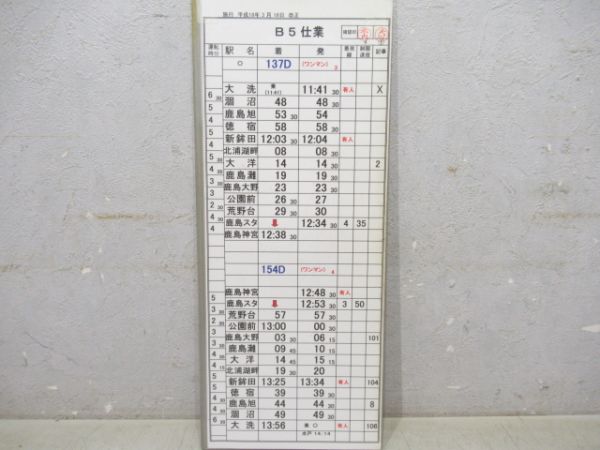 施行 平成18年 3月 18日 改正
B5仕業
運転時分 駅名 着 発 着発線 制限速度 記事
○ 137D (ワンマン) 3
大洗 (11:41) 11:41 30 有人 X
6
涸沼 48 48 30
4 30
鹿島旭 53 30 54
4
徳宿 58 58 30
4
新鉾田 12:03 30 12:04 有人
北浦湖畔 08 08 30
大洋 14 14 30 2
鹿島灘 19 19 30
鹿島大野 23 23 30
公園前 26 30 27
荒野台 29 30 30
鹿島スタ ↓ 12:34 30 4 35
鹿島神宮 12:38 30
154D (ワンマン) 4
鹿島神宮 12:48 30 有人
5
鹿島スタ ↓ 12:53 30 3 50
荒野台 57 57 30
公園前 13:00 00 30
鹿島大野 03 30 06 15 101
鹿島灘 09 45 10 15
大洋 14 45 15 15
北浦湖畔 19 30 20
新鉾田 13:25 13:34 有人 104
徳宿 39 39 30
鹿島旭 44 44 30 8
涸沼 49 49 30
6 30
大洗 13:56 有人 106
水戸 14:14